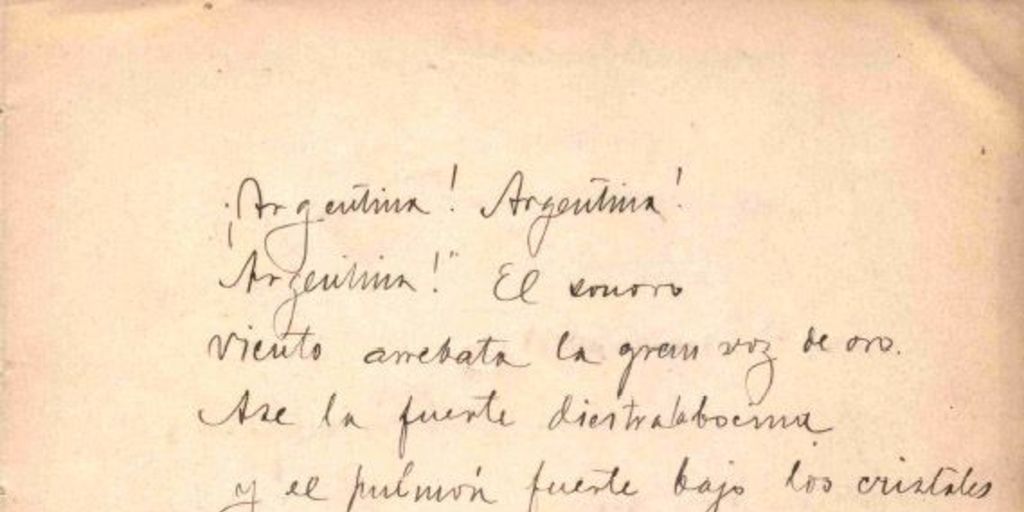 ¡Argentina! Argentina!
Argentina!" El sonoro
viento arrebata la gran voz de oro.
Ase la fuerte diestra la bocina
y el pulmón fuerte bajo los cristales